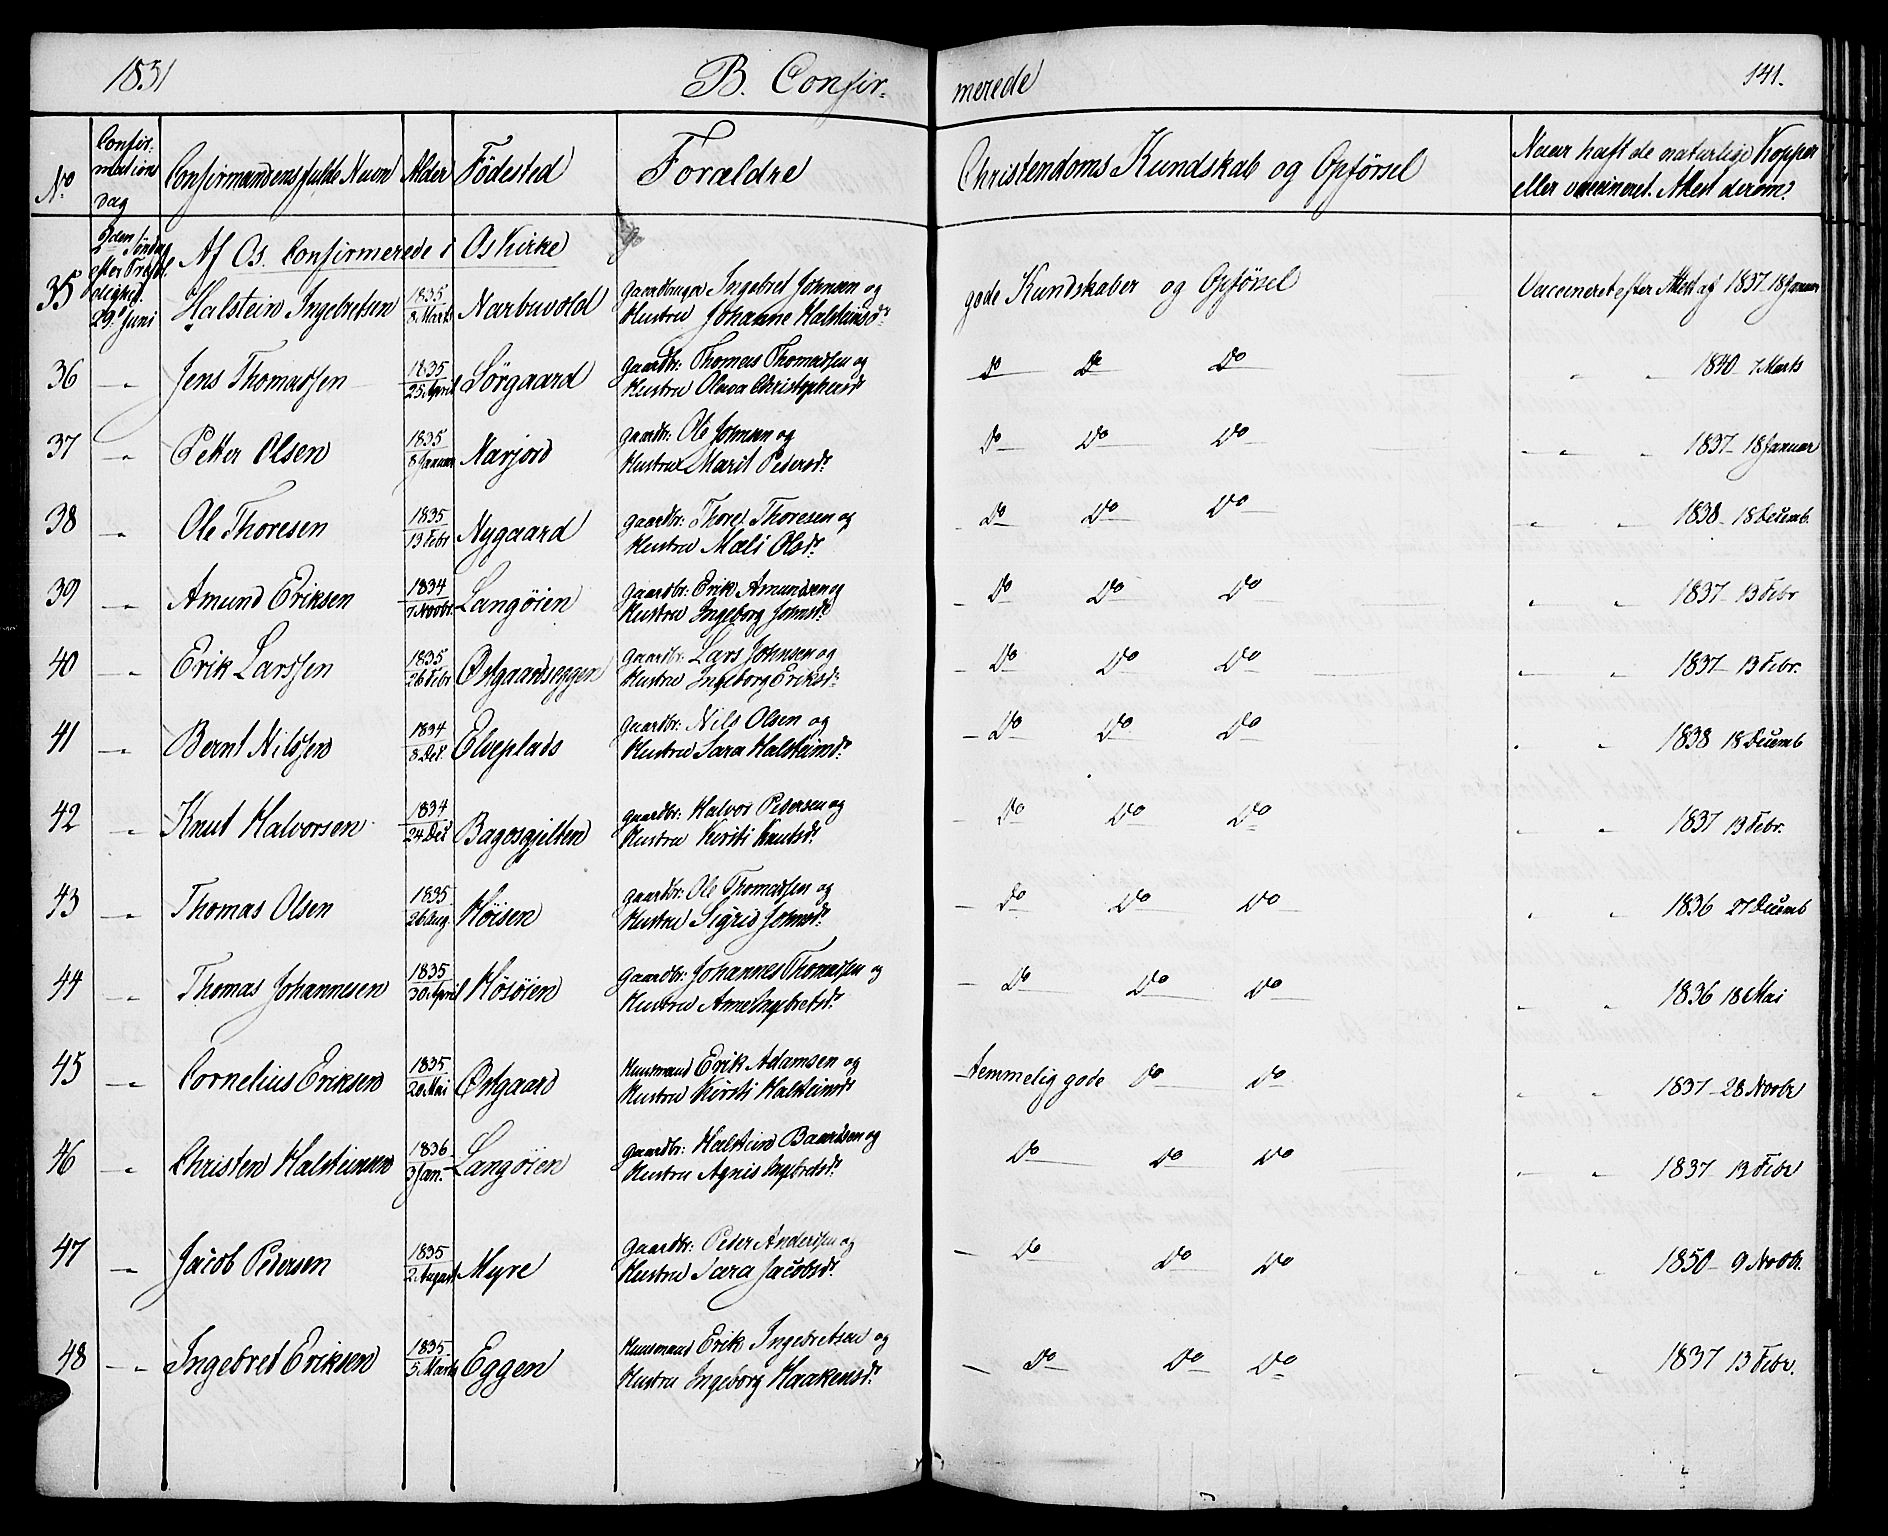 1851 B. Confirmerede 141.
No Confirmations Dag Confirmandens fulde Navn Alder Födested Forældre Christendoms Kundskab og Opförsel Naar haft de naturlige Kopper eller vaccineret. Attest derom.
2den Söndag efter Trefoldighed. 29. Juni
Af Os. Confirmerede i Os Kirke
35 Halstein Ingebretsen 1835 8 Marts Narbuvold Gaardbruger Ingebret Johnsen og Hustru Johanne Halsteinsdr gode Kundskaber og Opförsel Vaccineret efter Attest af 1837 18 Januar
36 " Jens Thomassen 1835 25 April Sörgaard Gaardbr: Thomas Thomassen og Hustru Olava Christophersdr Do Do Do " " 1840 7 Marts
37 " Peter Olsen 1835 8 Januar Narjord Gaardbr: Ole Johnsen og Hustru Marit Pedersdr Do Do Do " " 1837 18 Januar
38 " Ole Thoresen 1835 13 Febr Nygaard Gaardbr: Thore Thoresen og Hustru Mali Olsdr Do Do Do " " 1838 18 Decemb.
39 " Amund Eriksen 1834 7 Novbr. Langöien Gaardbr: Erik Amundsen og Hustru Ingeborg Johnsdr Do Do Do " " 1837 13 Febr
40 " Erik Larssen 1835 26 Febr Östgaardseggen Gaardbr: Lars Johnsen og Hustru Ingeborg Eriksdr Do Do Do " " 1837 13 Febr.
41 " Bernt Nilssen 1834 8 Dec. Elveplads Gaardbr: Nils Olsen og Hustru Sara Halsteinsdr Do Do Do " " 1838 18 Decemb
42 " Knut Halvorsen 1834 24 Dec Gaardbr: Halvor Pedersen og Hustru Kirsti Knutsdr Do Do Do " " 1837 13 Febr.
43 " Thomas Olsen 1835 26 Aug. Höisen Gaardbr: Ole Thomassen og Hustru Sigrid Johnsdr Do Do Do " " 1836 27 Decemb
44 " Thomas Johannesen 1835 30 April Hösöien Gaardbr: Johannes Thomassen og Hustru Arne Ingebretsdr Do Do Do " " 1836 18 Mai
45 " Cornelius Eriksen 1835 20 Mai Östgaard Huusmand Erik Adamsen og Hustru Kirsti Halsteinsdr temmelig gode Do Do " " 1837 28 Novbr
46 " Christen Halsteinsen 1836 3 Jan. Langöien Gaardbr: Halstein Baardsen og Hustru Agnis Ingebretsdr Do Do Do " " 1837 13 Febr
47 " Jacob Pedersen 1835 2 August Myre Gaardbr: Peder Anderssen og Hustru Sara Jacobsdr. Do Do Do " " 1850 9 Novbr.
48 " Ingebret Eriksen 1835 5 Marts Eggen Huusmand Erik Ingebretsen og Hustru Ingeborg Haakensdr. Do Do Do " " 1837 13 Febr.